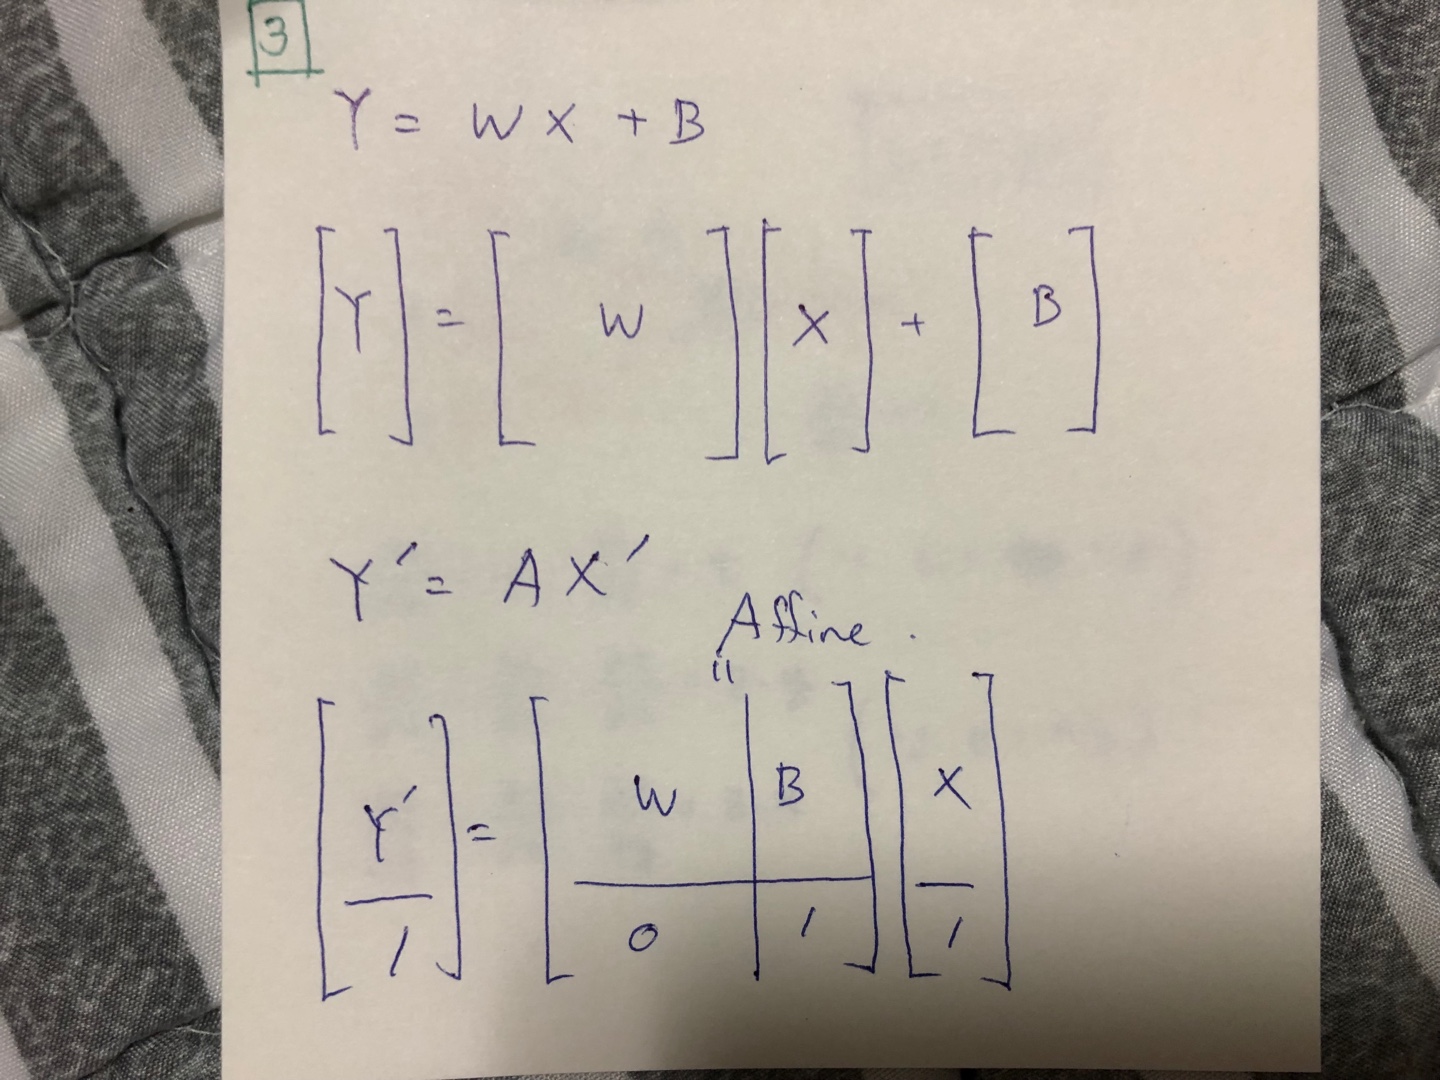 3
Y = W X + B
[Y] = [ W ] [X] + [ B ]
Y' = A X'
Affine .
"
[ Y' ] = [ W | B ] [ X ]
[ 1 ] [ 0 | 1 ] [ 1 ]